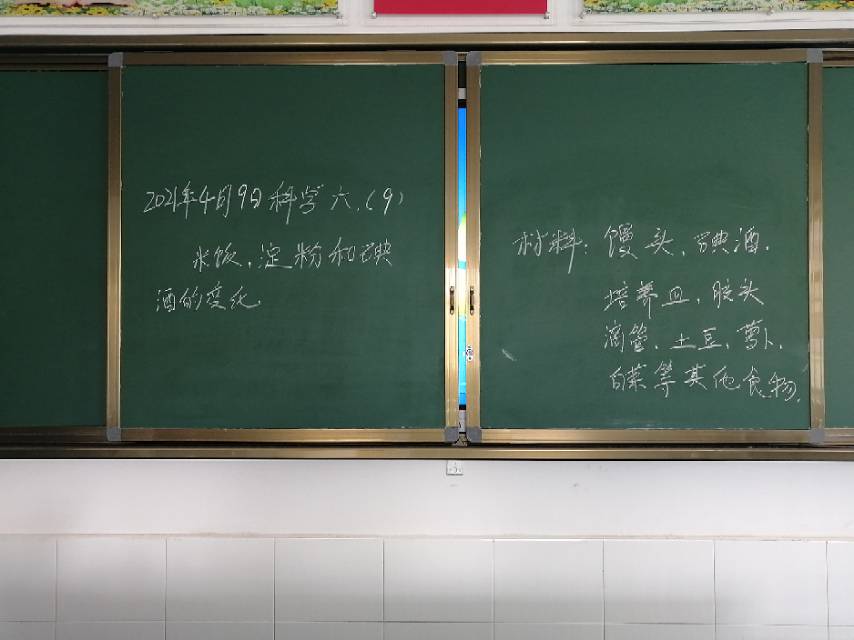 2021年4月9日科学六.(9)
米饭、淀粉和碘
酒的变化
材料：馒头、碘酒.
培养皿、胶头
滴管、土豆、萝卜.
白菜等其他食物.